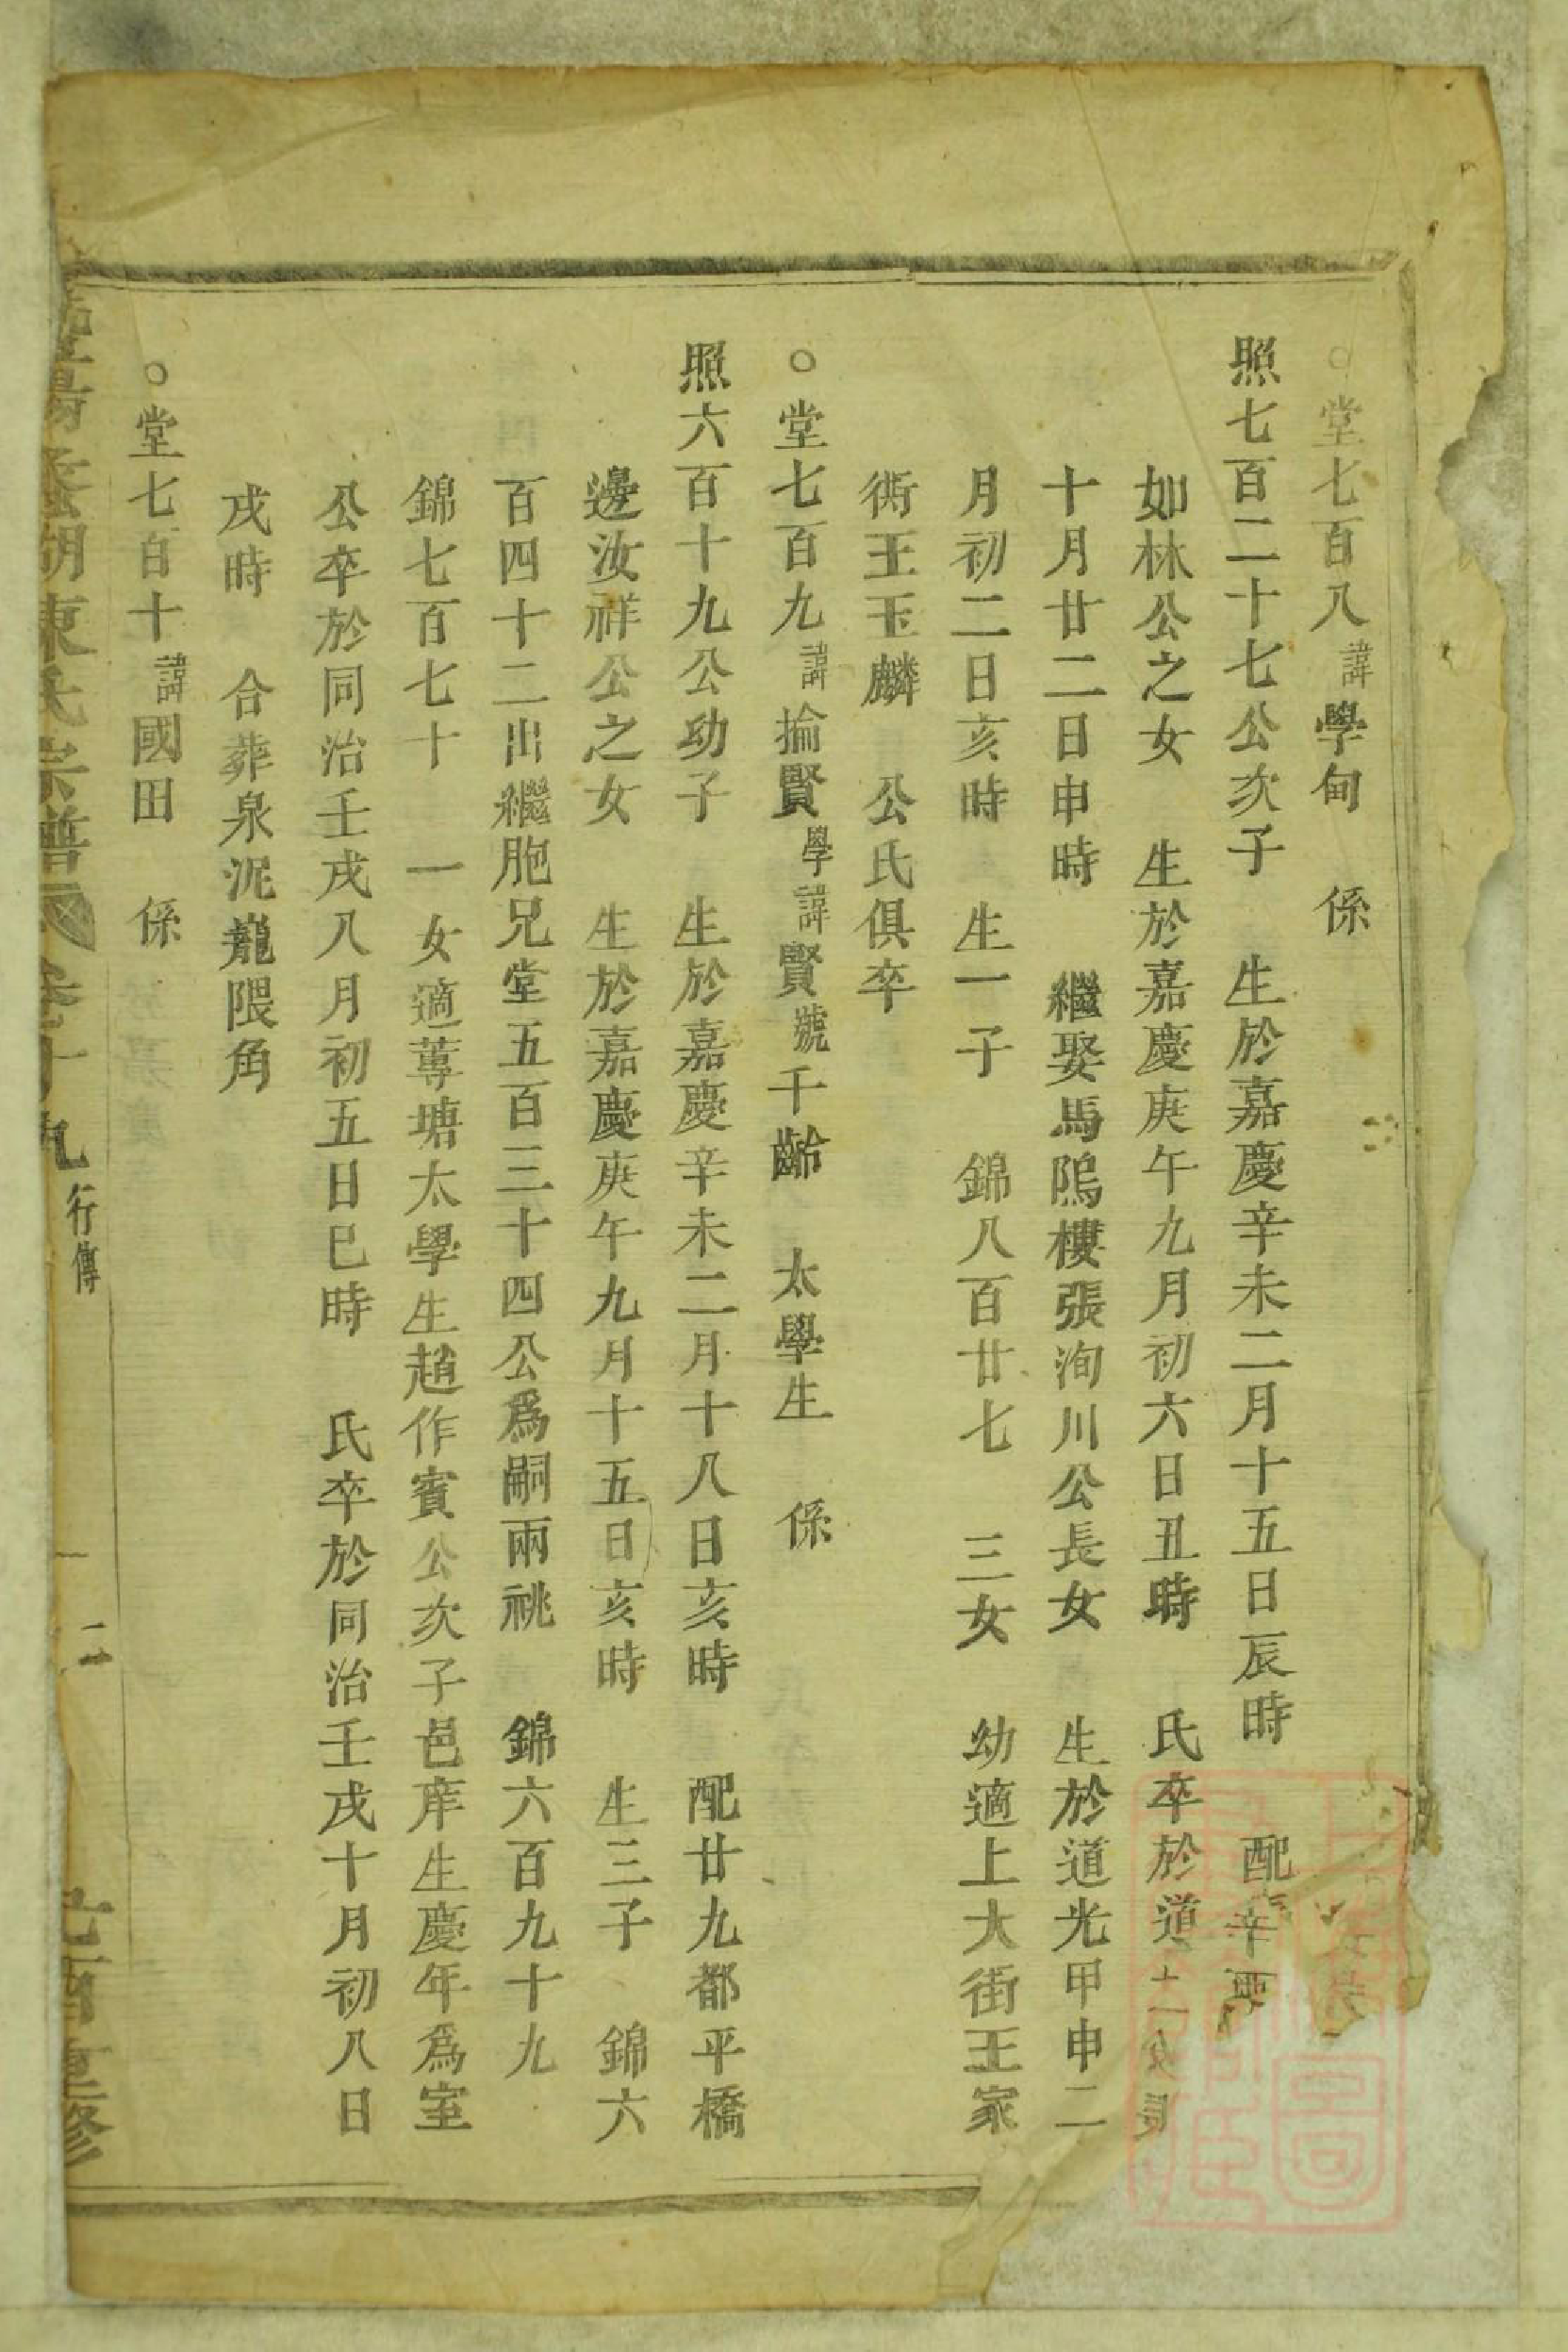 ○堂七百八諱學甸 係
照七百二十七公次子 生於嘉慶辛未二月十五日辰時 配辛
如林公之女 生於嘉慶庚午九月初六日丑時 氏卒於道
十月廿二日申時 繼娶馬隖樓張洵川公長女 生於道光甲申二
月初二日亥時 生一子 錦八百廿七 三女 幼適上大街王家
衖王玉麟 公氏俱卒
○堂七百九諱掄賢學諱賢號千齡 太學生 係
照六百十九公幼子 生於嘉慶辛未二月十八日亥時 配廿九都平橋
邊汝祥公之女 生於嘉慶庚午九月十五日亥時 生三子 錦六
百四十二出繼胞兄堂五百三十四公爲嗣兩祧 錦六百九十九
錦七百七十 一女適蓴塘太學生趙作賓公次子邑庠生慶年爲室
公卒於同治壬戌八月初五日巳時 氏卒於同治壬戌十月初八日
戌時 合葬泉泥巃隈角
○堂七百十諱國田 係
湖東氏宗譜 卷十九 行傳 二 重修